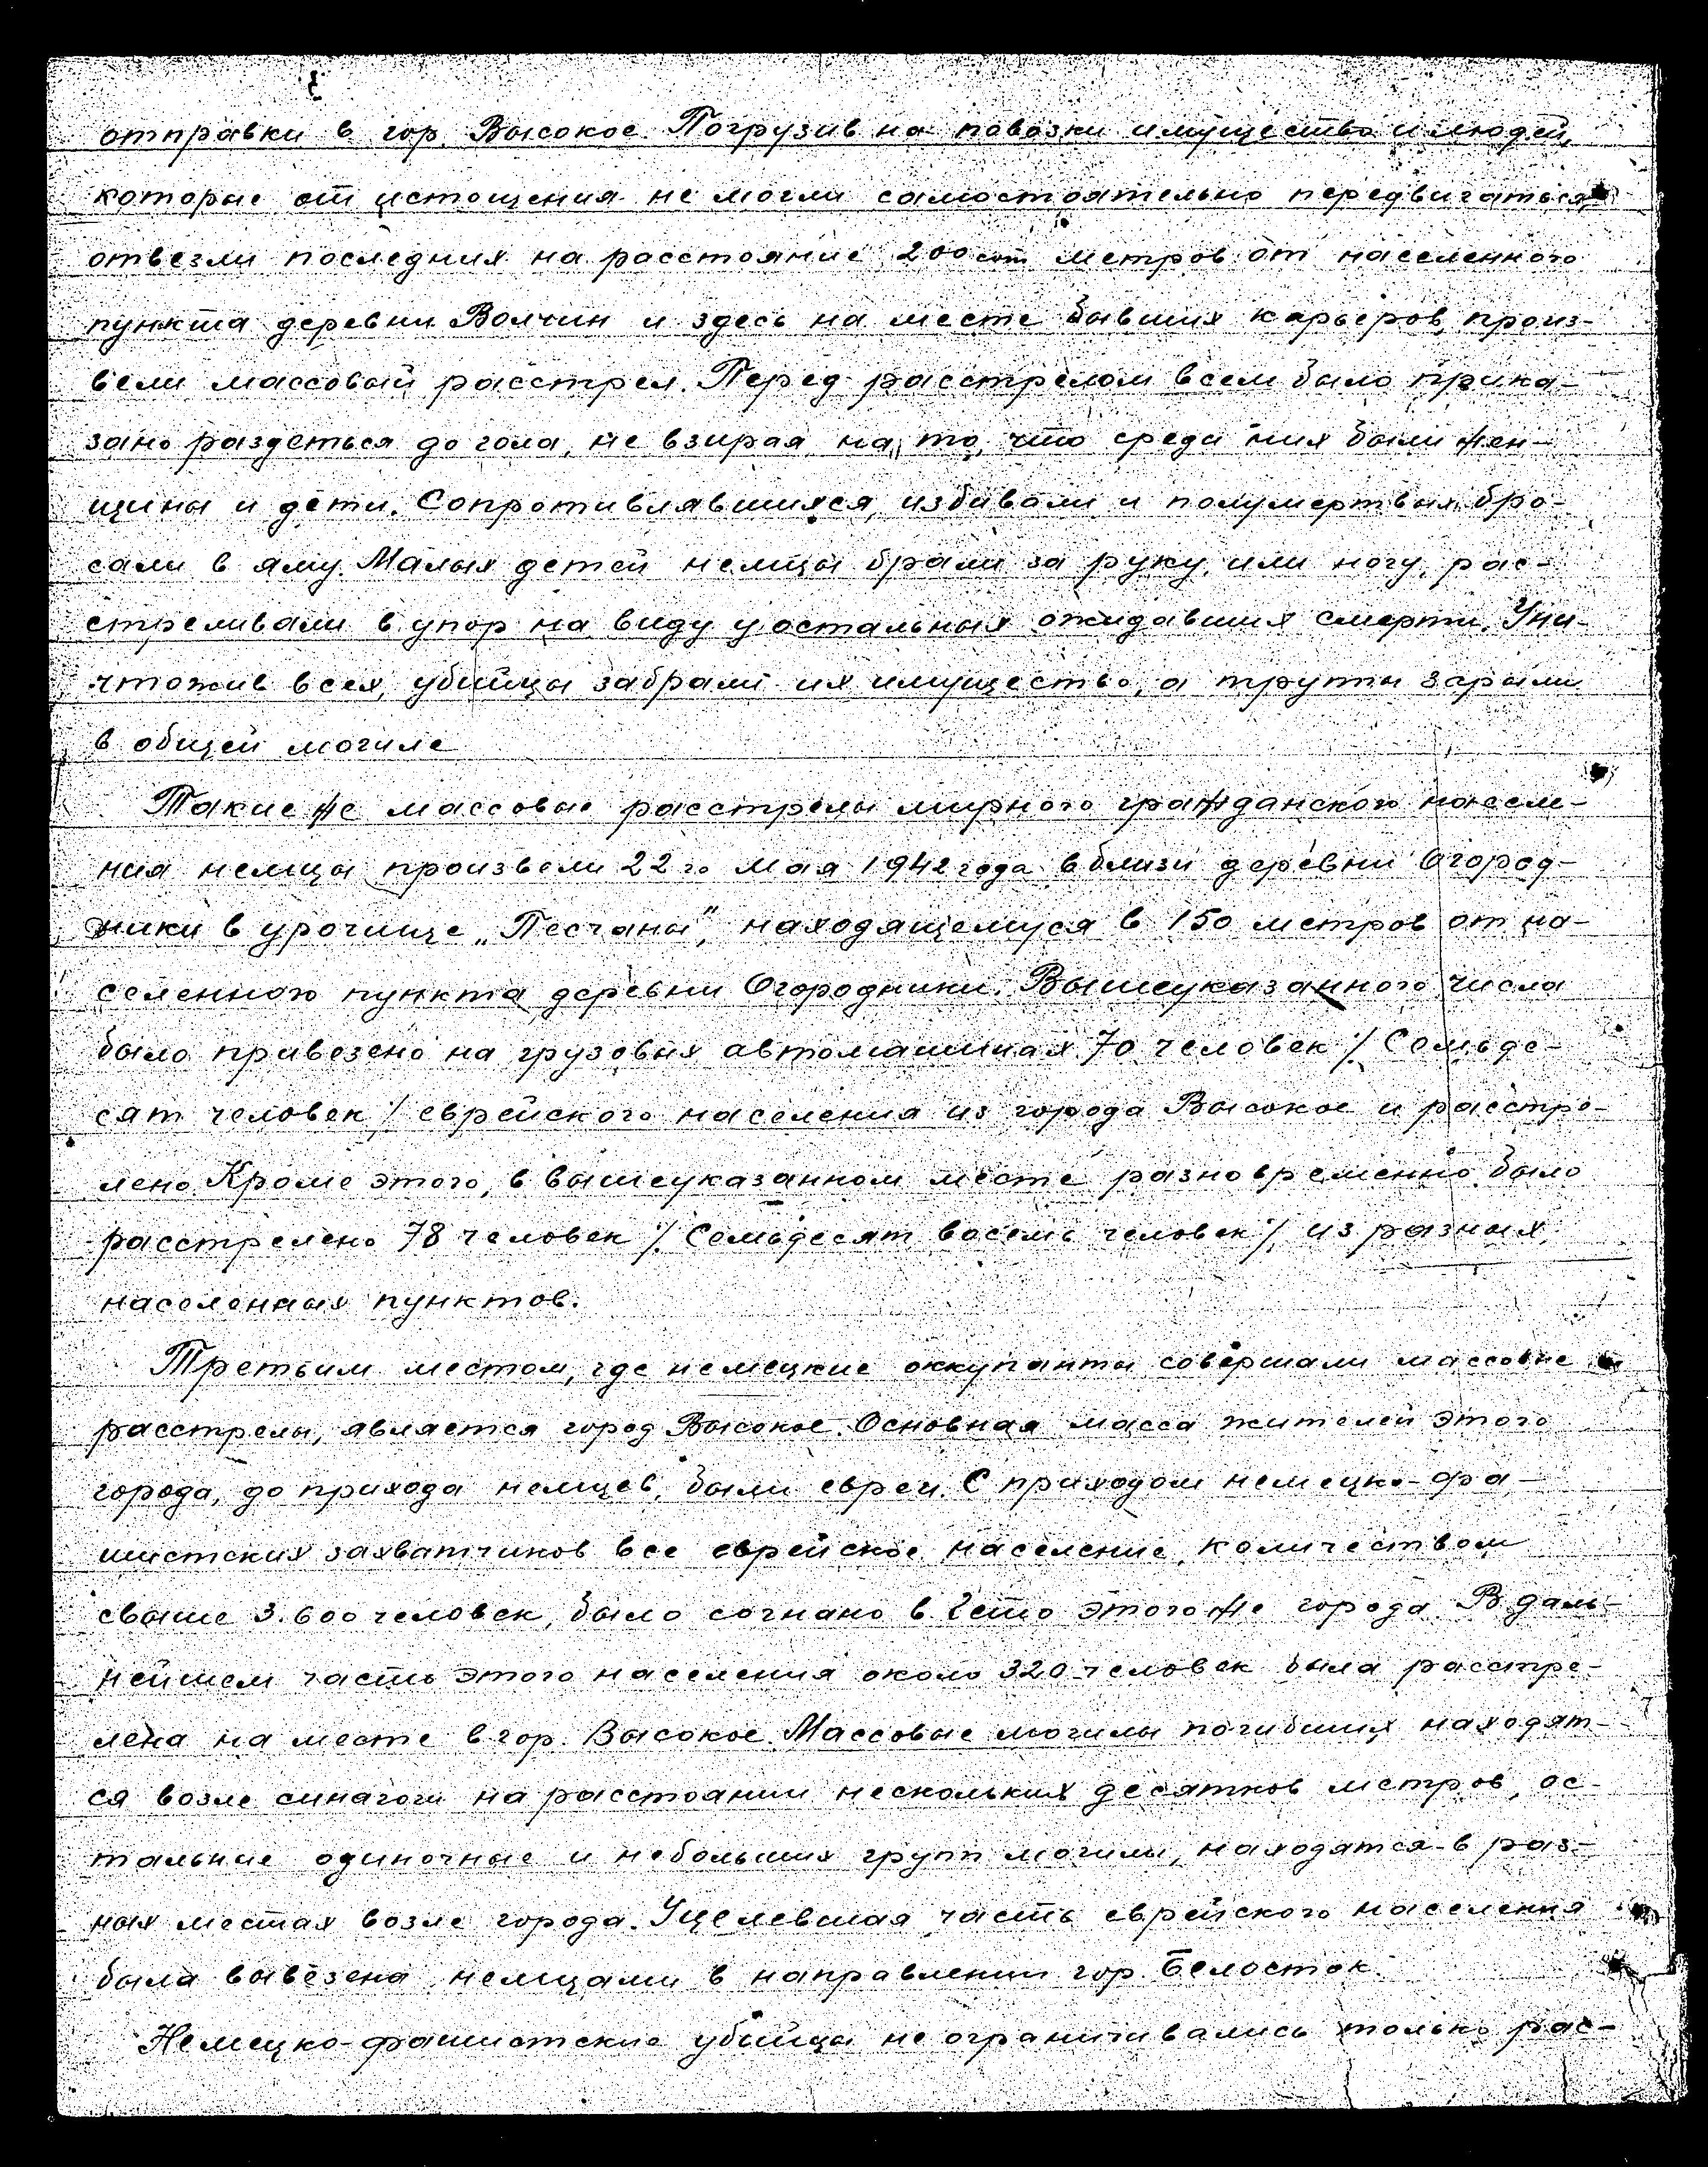 отправки в гор. Высокое. Погрузив на повозки имущество и людей,
которые от истощения не могли самостоятельно передвигаться,
отвезли последних на расстояние 200 метров от населенного
пункта деревни Волчин и здесь на месте бывших карьеров, произ-
вели массовый расстрел. Перед расстрелом всем было прика-
зано раздеться до гола, не взирая на то, что среди них были жен-
щины и дети. Сопротивлявшихся, избивали и полумертвых бро-
сали в яму. Малых детей немцы брали за руку, или ногу, рас-
стреливали в упор на виду у остальных ожидавших смерти. Уни-
чтожив всех, убийцы забрали их имущество, а трупы зарыли
в общей могиле
Такие же массовые расстрелы мирного гражданского населе-
ния немцы произвели 22го мая 1942 года вблизи деревни Огород-
ники в урочище „Песчаны", находящемуся в 150 метров от на-
селенного пункта деревни Огородники. Вышеуказанного числа
было привезено на грузовых автомашинах 70 человек /. Семьде-
сят человек / еврейского населения из города Высокое и расстре-
лено. Кроме этого, в вышеуказанном месте разновременно было
расстрелено 78 человек /. Семьдесят восемь человек / из разных
населенных пунктов.
Третьим местом, где немецкие оккупанты совершали массовые
расстрелы, является город Высокое. Основная масса жителей этого
города, до прихода немцев, были евреи. С приходом немецко-фа-
шистских захватчиков все еврейское население, количеством
свыше 3.600 человек, было согнано в гетто этого же города. В даль-
нейшем часть этого населения около 320 человек была расстре-
лена на месте в гор. Высокое. Массовые могилы погибших находят-
ся возле синагоги на расстоянии нескольких десятков метров, ос-
тальные одиночные и небольших групп могилы, находятся в раз-
ных местах возле города. Уцелевшая часть еврейского населения
была вывезена немцами в направлении гор. Белосток.
Немецко-фашистские убийцы не ограничивались только рас-